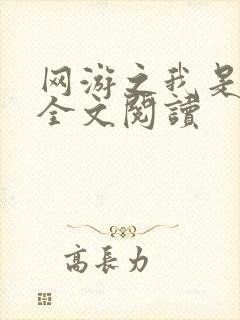 网游之我是
全文閱讀
高長力